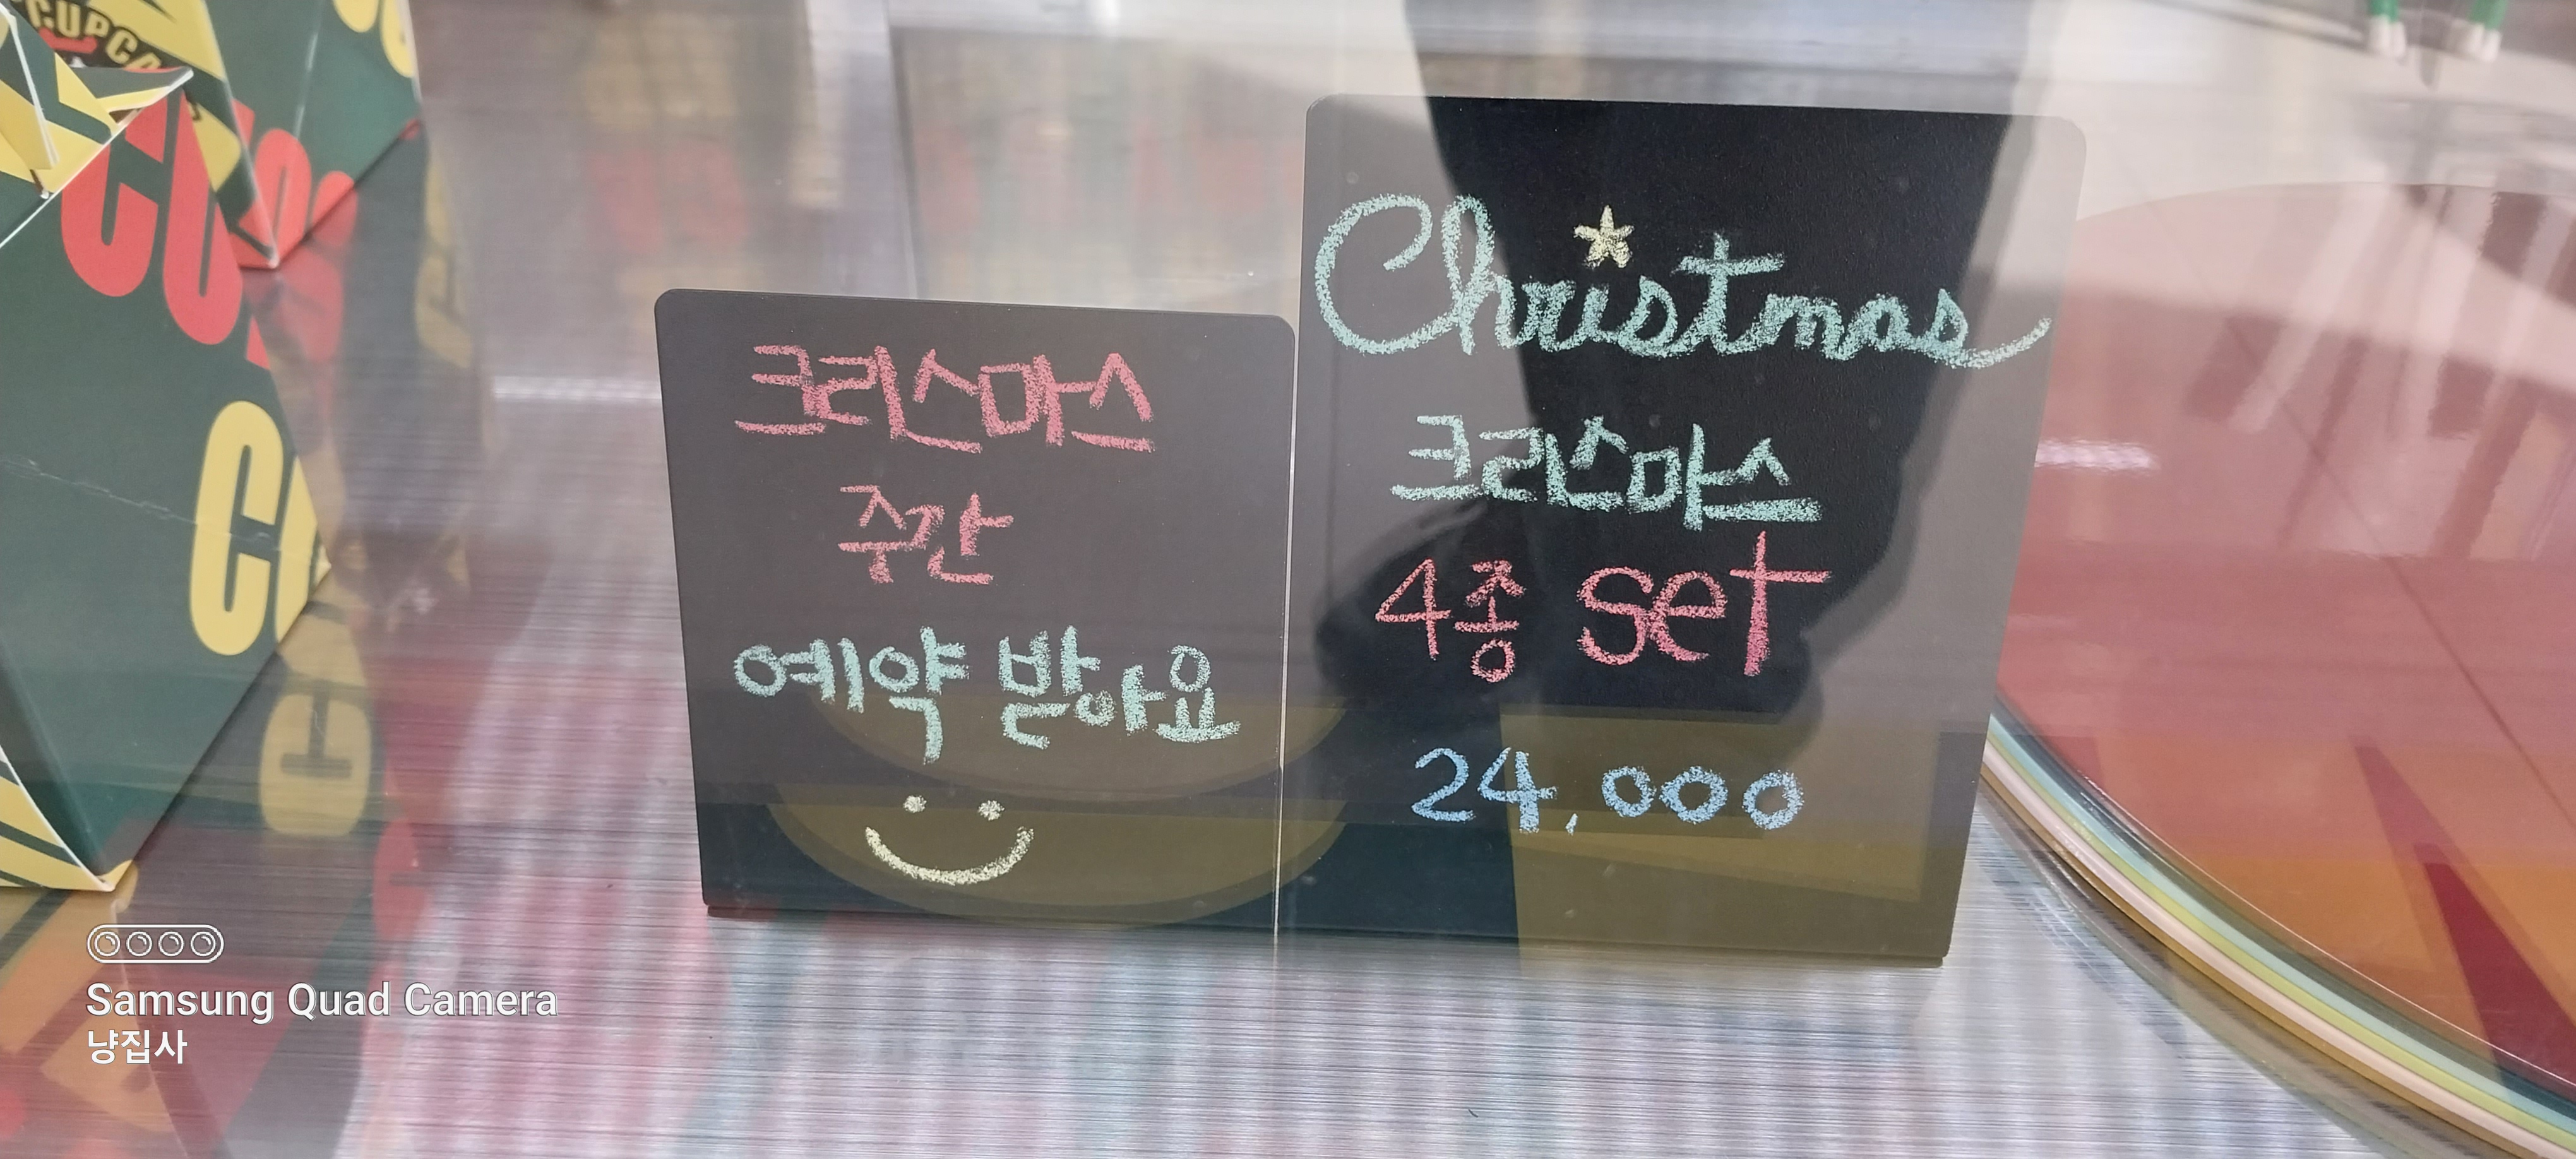 CUPCA
CUP
크리스마스
주간
예약 받아요
Christmas
크리스마스
4종 set
24,000
Samsung Quad Camera
냥집사